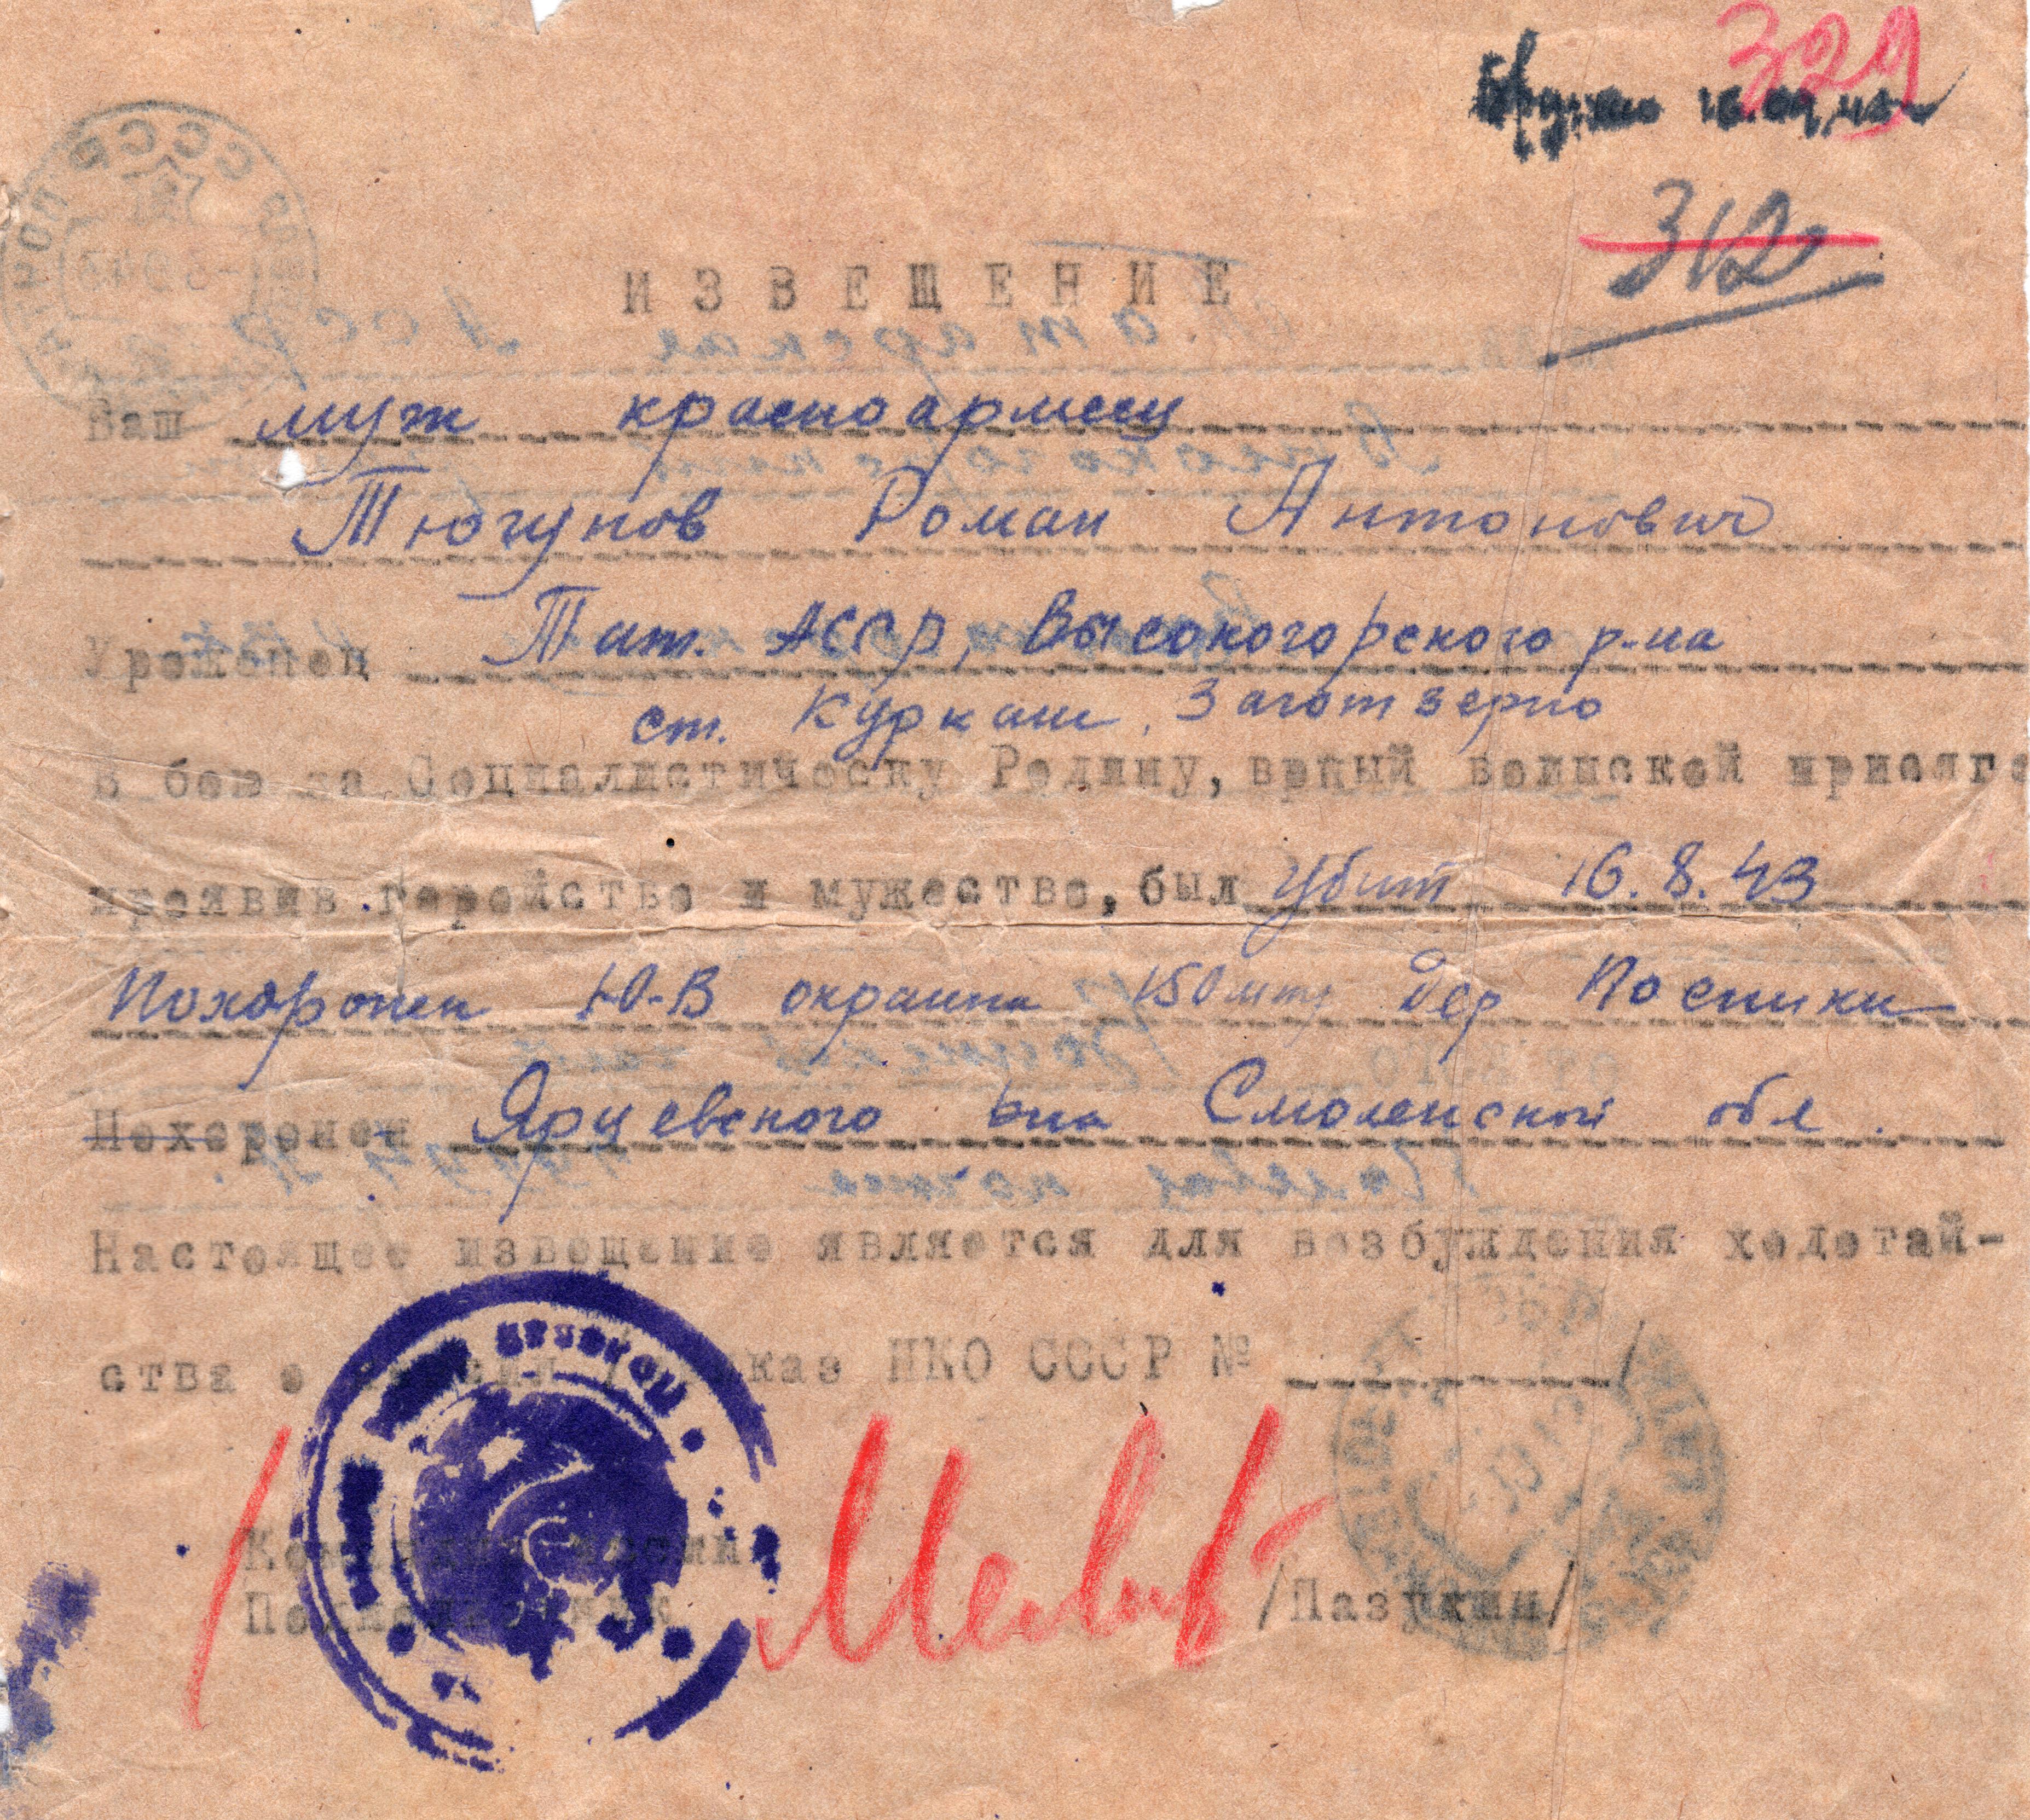 329
Вручено 16.09.43
312
ИЗВЕЩЕНИЕ
Ваш муж красноармеец
Тюгунов Роман Антонович
Уроженец Тат. АССР, Высокогорского р-на
ст. Куркаш. Заготзерно
В бою за Социалистическу Родину, верный воинской присяге
проявив геройство и мужество, был убит 16.8.43
Похоронен Ю-В окраина 150 мтр дер Посники
Похоронен Ярцевского р-на Смоленской обл.
Настоящее извещение является для возбуждения ходотай-
ства о НКО СССР № /
Командир части
Подполковник /Пазухин/